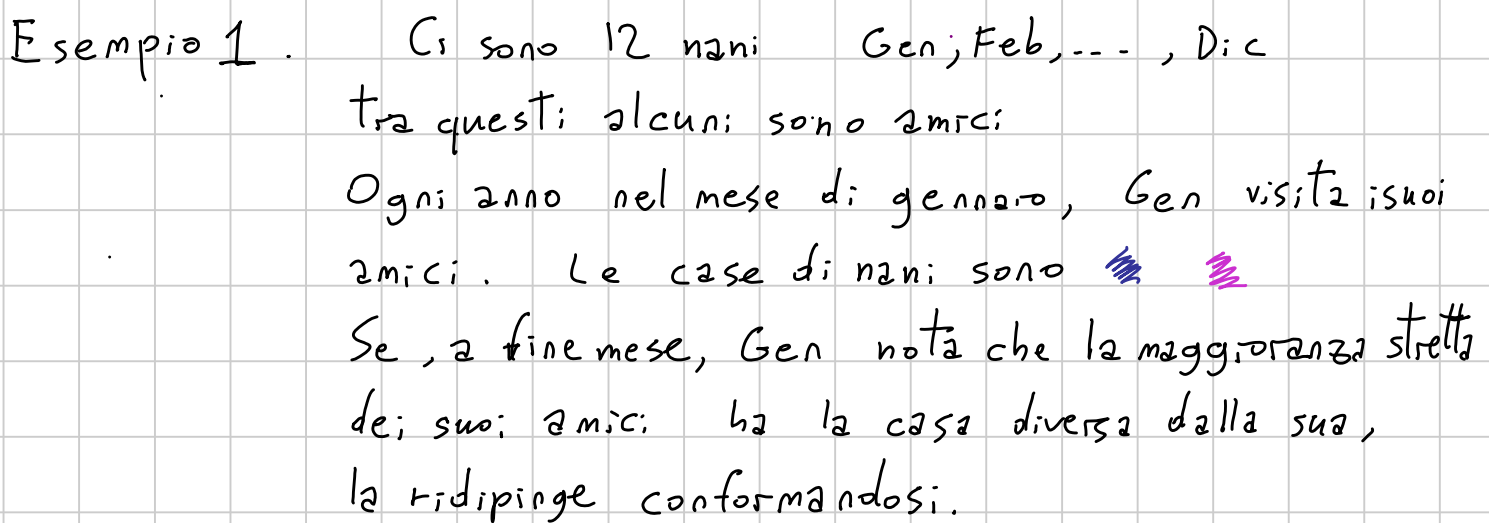 Esempio 1. Ci sono 12 nani Gen, Feb, ..., Dic
tra questi alcuni sono amici
Ogni anno nel mese di gennaio, Gen visita i suoi
amici. Le case di nani sono
Se, a fine mese, Gen nota che la maggioranza stretta
dei suoi amici ha la casa diversa dalla sua,
la ridipinge conformandosi.